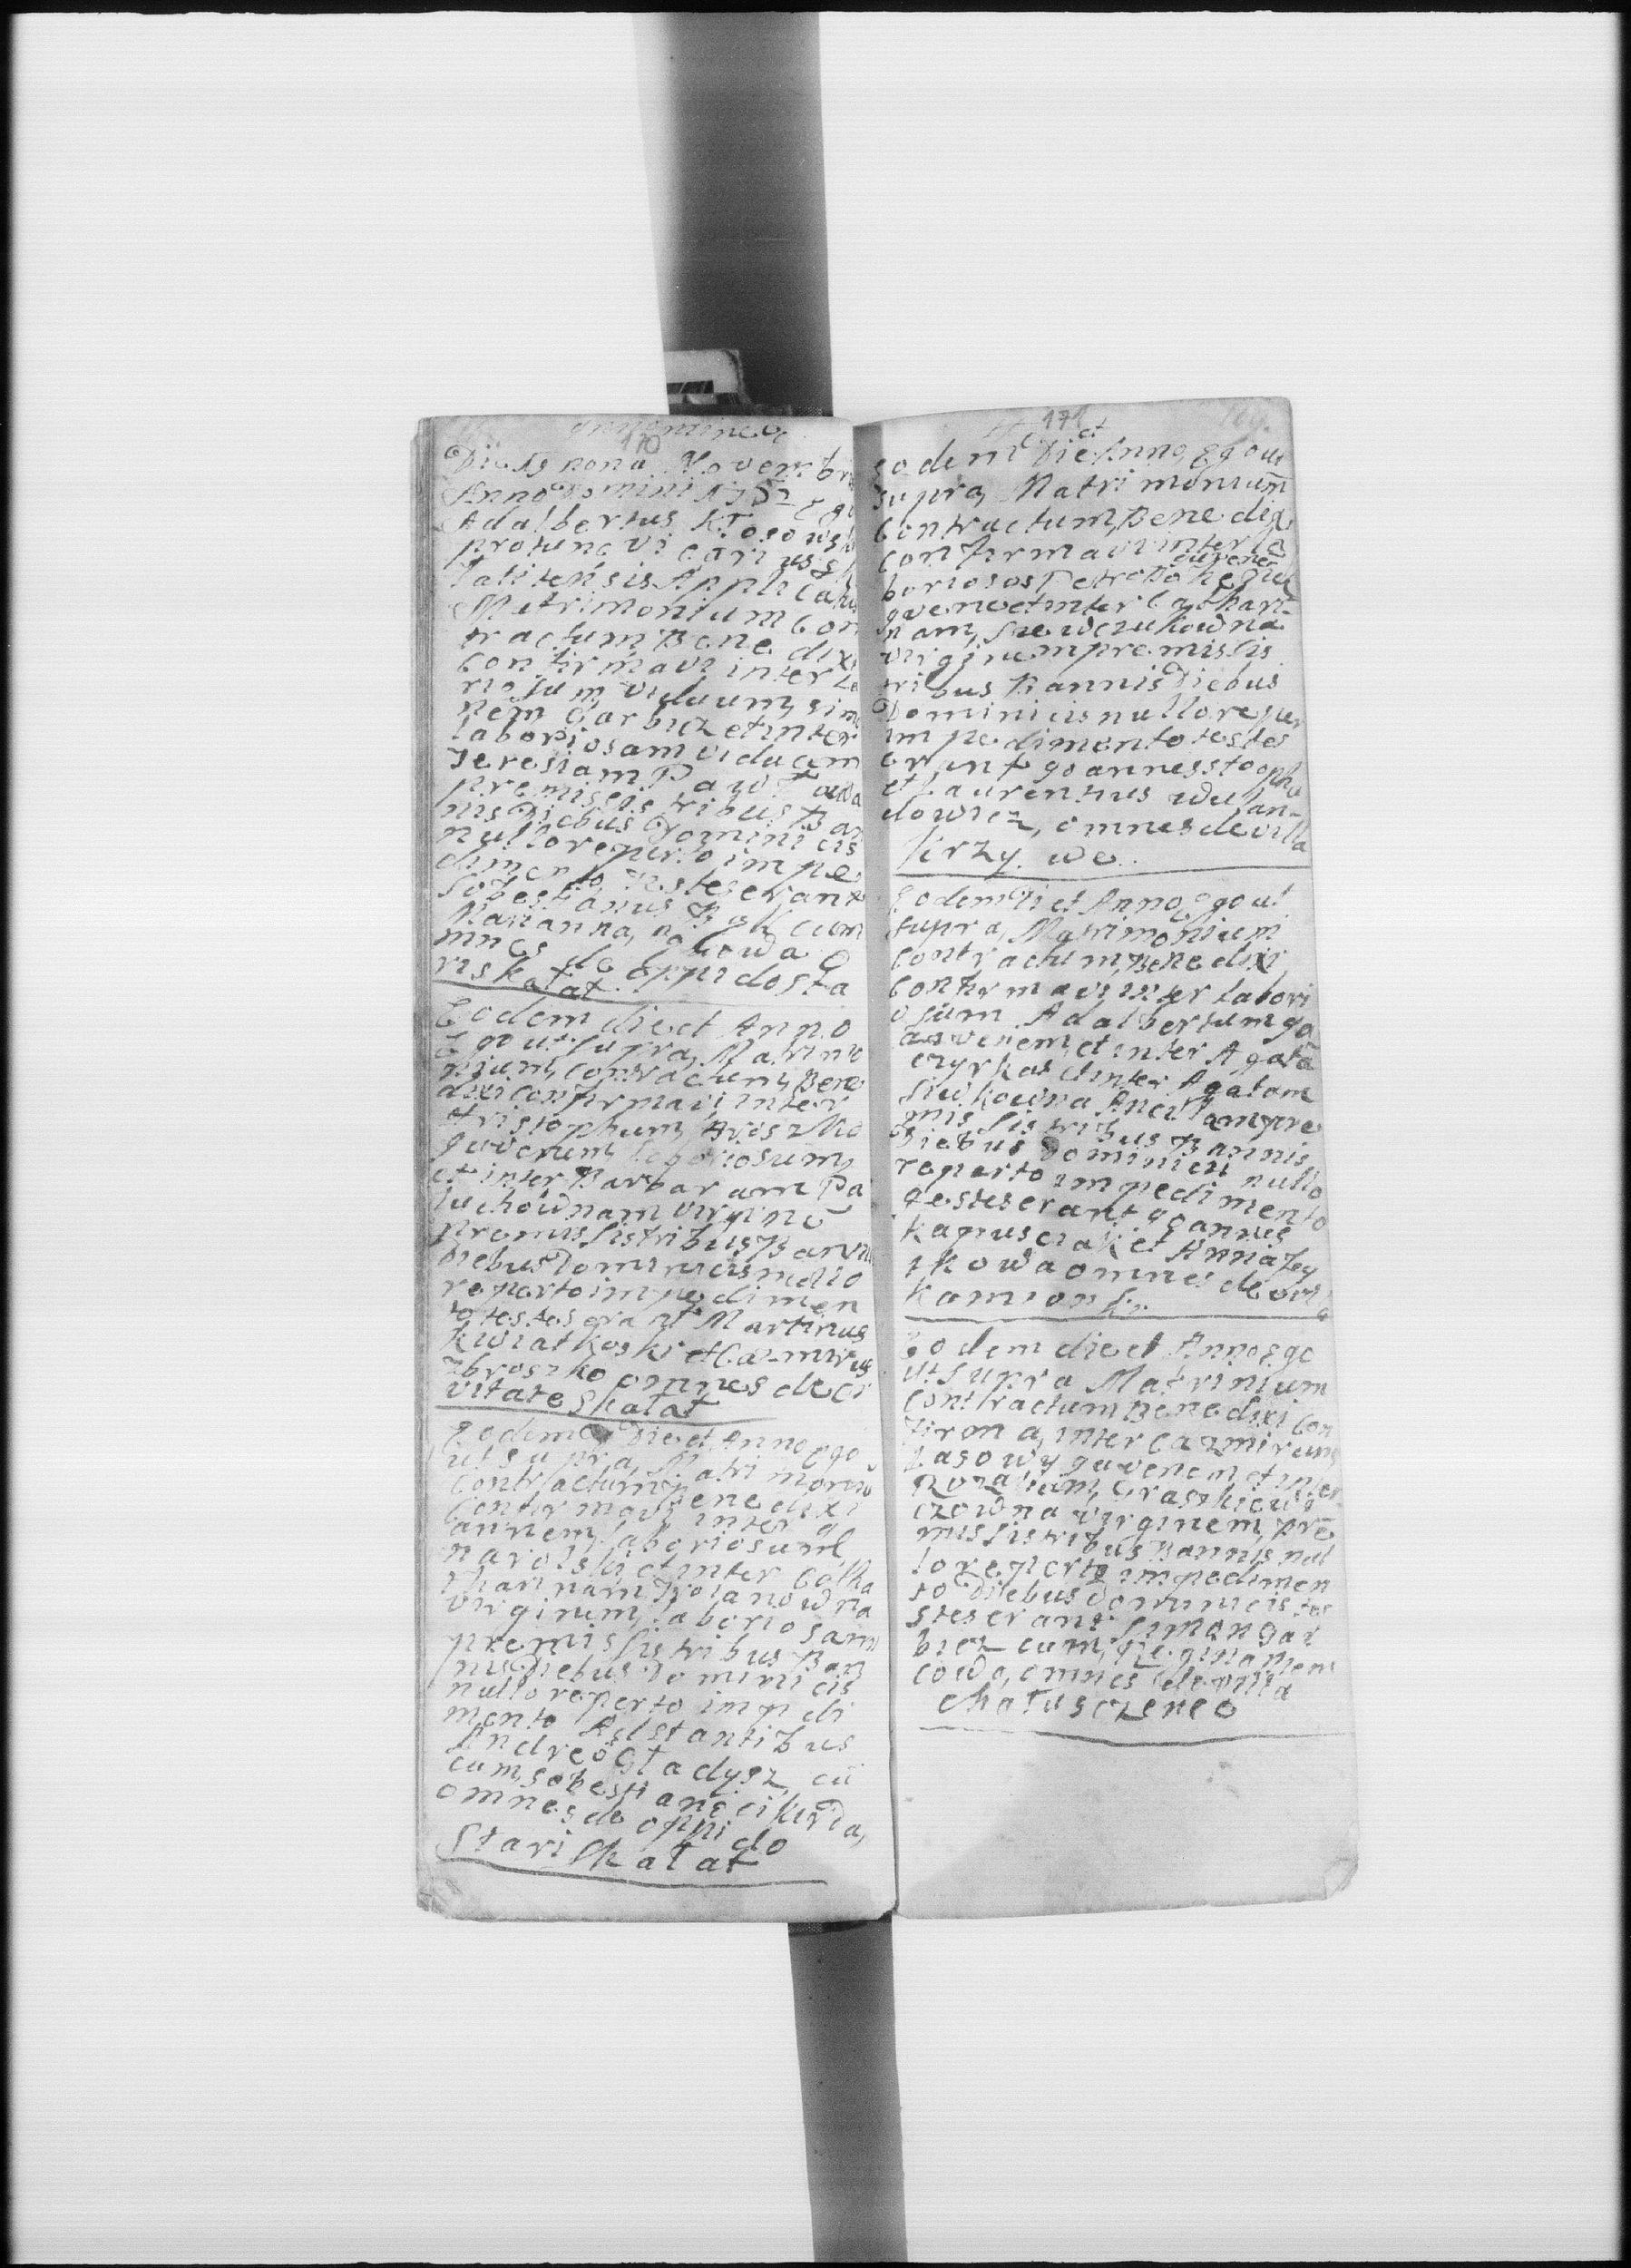 170
Die 19 nona Novembris
Anno Domini 1752 Ego
Adalbertus Kłosowski
protunc vicarius S
Matrimonium Con
tractum Bene dixi
Confirmavi inter La
riosum viduum, Simo
nem Garbicz et inter
laboriosam viduam
Teresiam
premissis tribus Ban
nis Diebus Dominicis
nullo reperto impe
dimento, testes erant
Sobestianus cum
Marianna,
mnes de oppido Sta
ri Skałat
Eodem die et Anno
Ego ut Supra, Matrimo
nium, Contractum, Bene
dixi Confirmavi, inter
Cristophum, Broszko
guvenem laboriosum,
et inter Barbaram Pa
luchownam virginē
premissis tribus Banni
Diebus Dominicis nullo
reperto impedimen
to testes erant Martinus
Kwiatkoski et Cazmirus
Zbroszko omnes de Ci
vitate Skałat
Eodem Die et Anno ego
ut supra, Matrimoniū
Contractum, Bene dixi
Confirmavi inter go
annem, laboriosum,
et inter Catha
rinam
virginem, laboriosam
premissis tribus Ban
nis Diebus Dominicis
nullo reperto impedi
mento Adstantibus
Andreo Gładysz, cū
cum Sobestiane
omnes de oppido
Stari Skałat
171
et
Eodem Die Anno, Ego ut
supra, Matrimonium
Contractum, Bene dixi
Confirmavi inter La
guvene
boriosos Petro
guene et inter Cathari-
nam, Szewczukowna
virginem premissis
tribus Bannis Diebus
Dominicis nullo reper
impedimento testes
erant goannes
et Laurentius
dowicz, omnes de villa
Krzywe.
Eodem Di et Anno, ego ut
supra, Matrimonium
Contractum, Bene dixi
Confirmavi inter labori
osum Adalbertum gu
guvenem, et inter Agatā
et inter Agatam
pre
missis tribus Bannis
Diebus Dominicis nullo
reperto impedimento
testes erant goannes
Kapusciak et Anna
omnes de vill
Kamionki.
Eodem die et Anno ego
ut supra Matrinium
Contractum Bene dixi Con
firma, inter Cazmirum
Lasowy guvenem et inter
Rozaliam,
virginem, pre
missis tribus Bannis nul
lo reperto impedimen
to Diebus dominicis te
stes erant Simon Gar
bicz cum, Regina
omnes de villa
Chałusczeneo